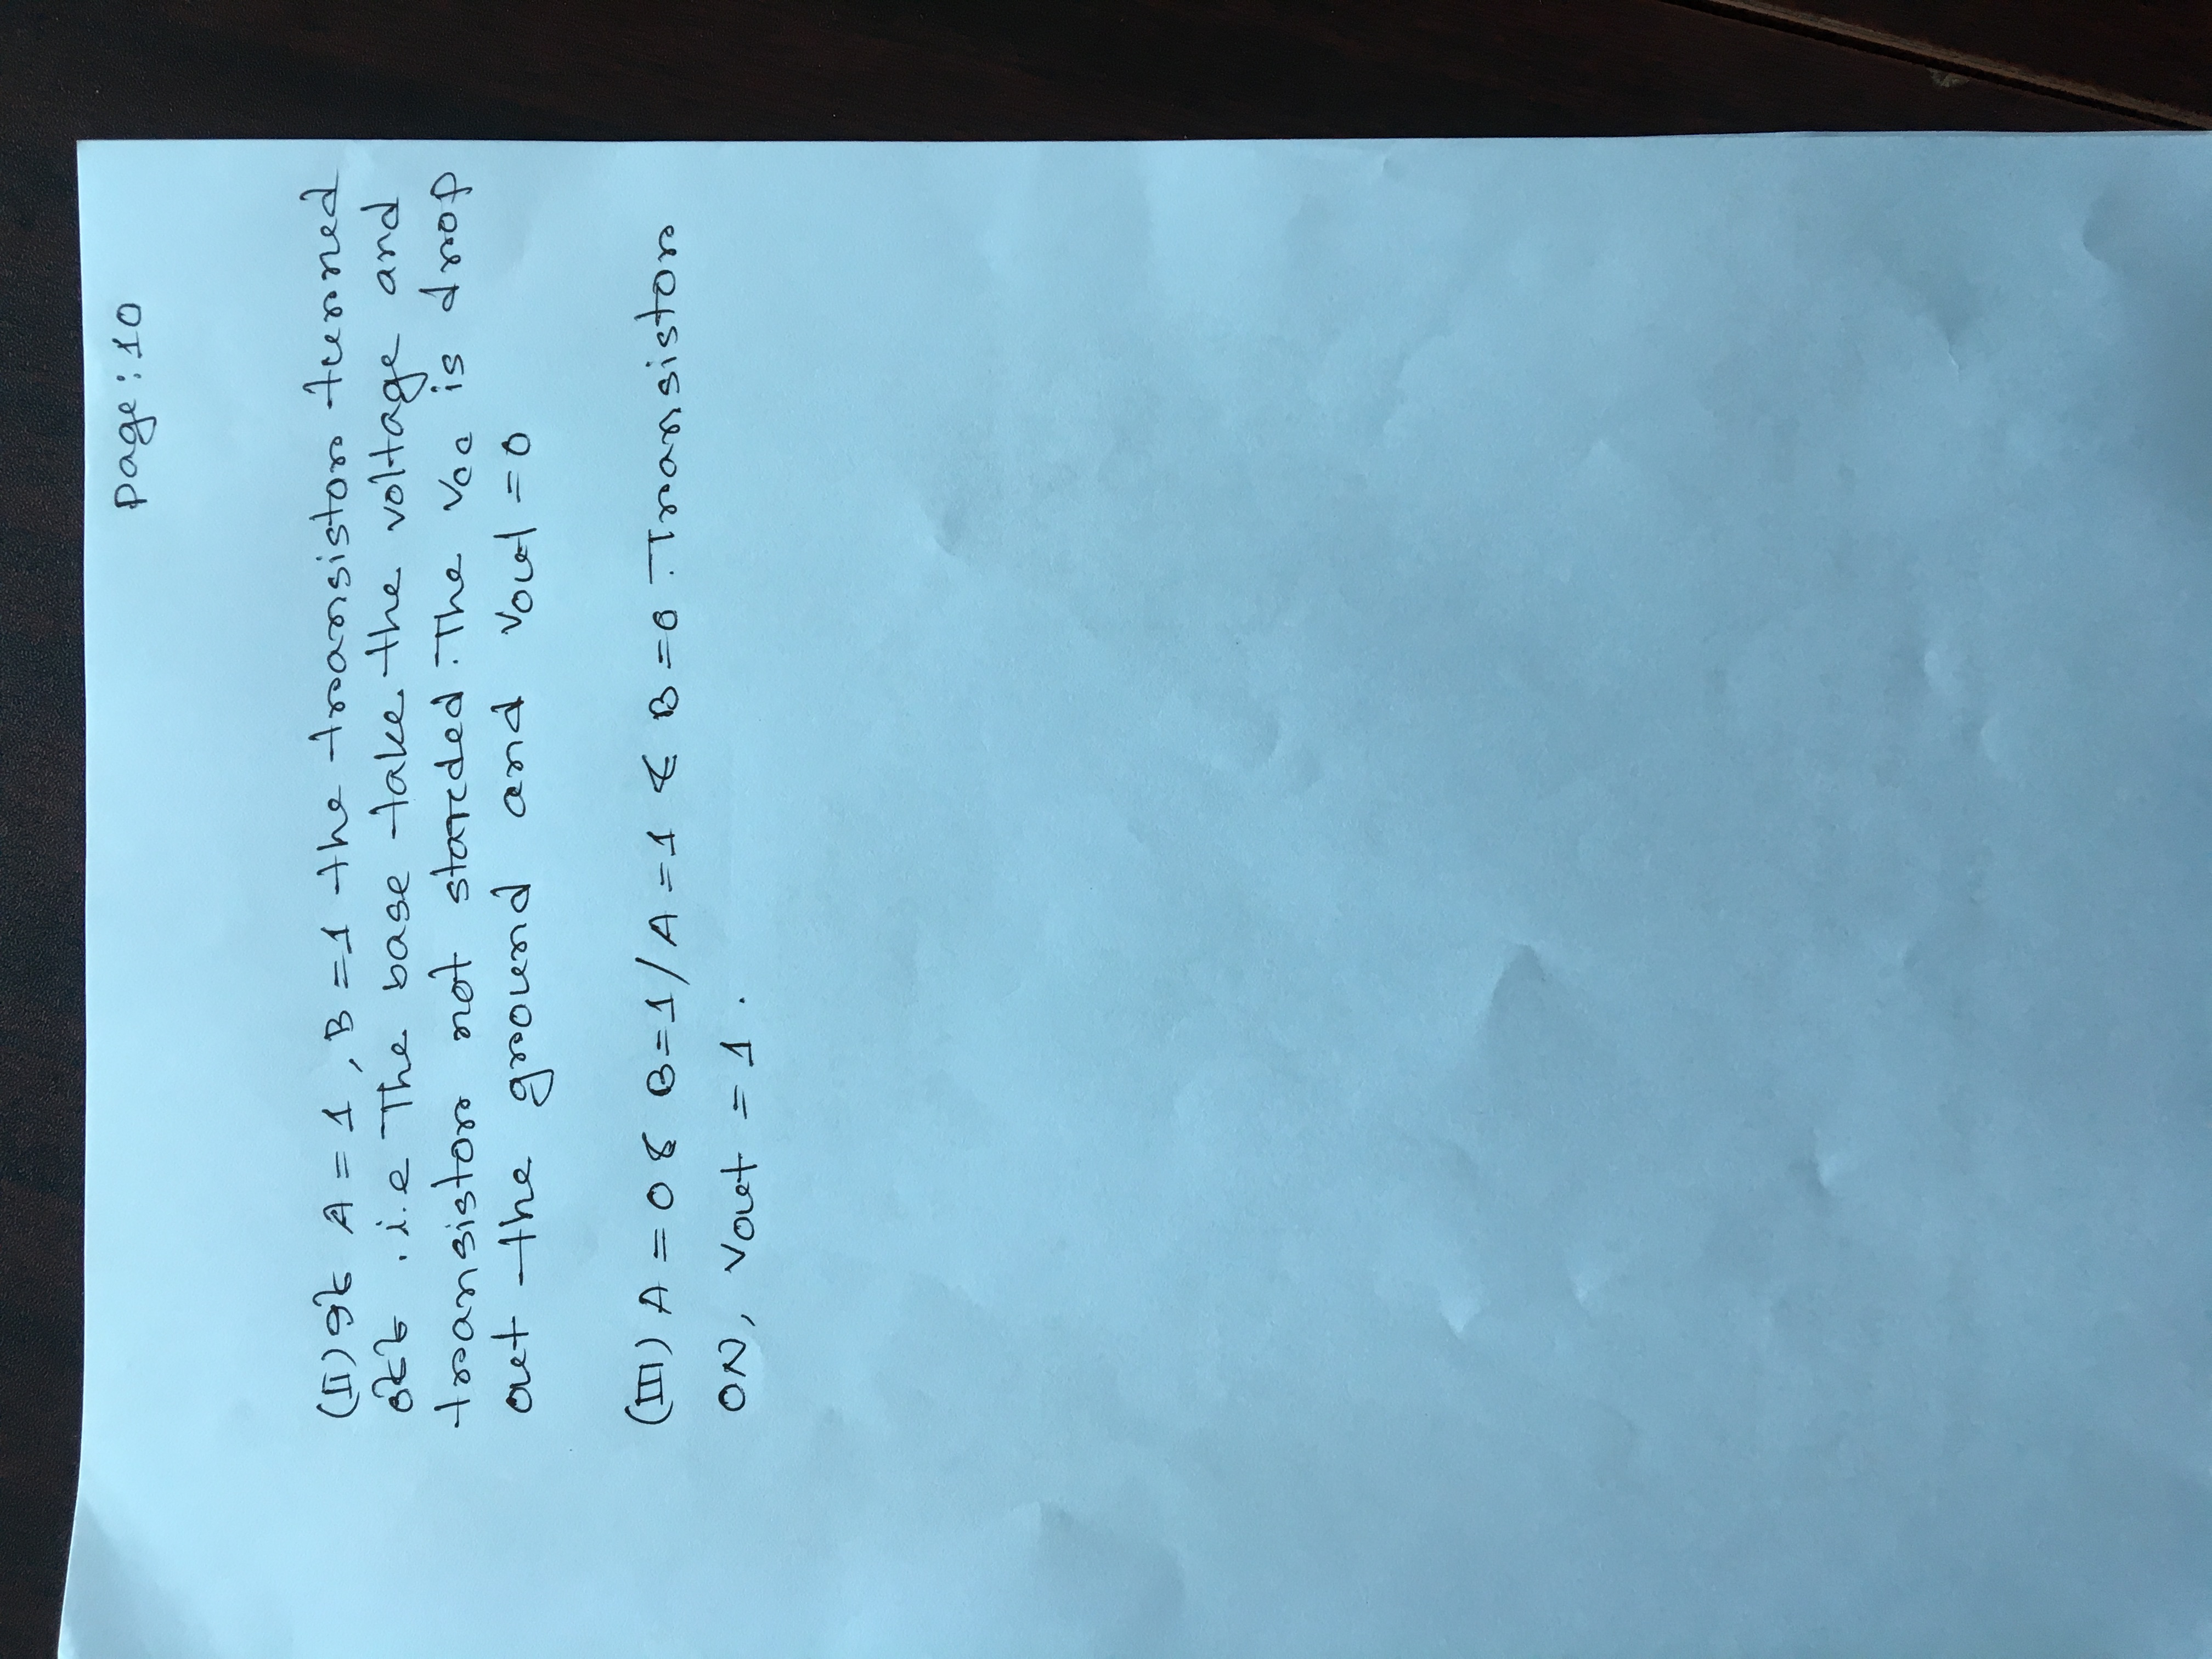 page: 10
(II) If A = 1, B = 1 the transistor turned
off . i.e The base take the voltage and
transistor not starded. The Vcc is drop
out the ground and Vout = 0
(III) A = 0 & B = 1 / A = 1 & B = 0 . Transistor
ON, Vout = 1 .